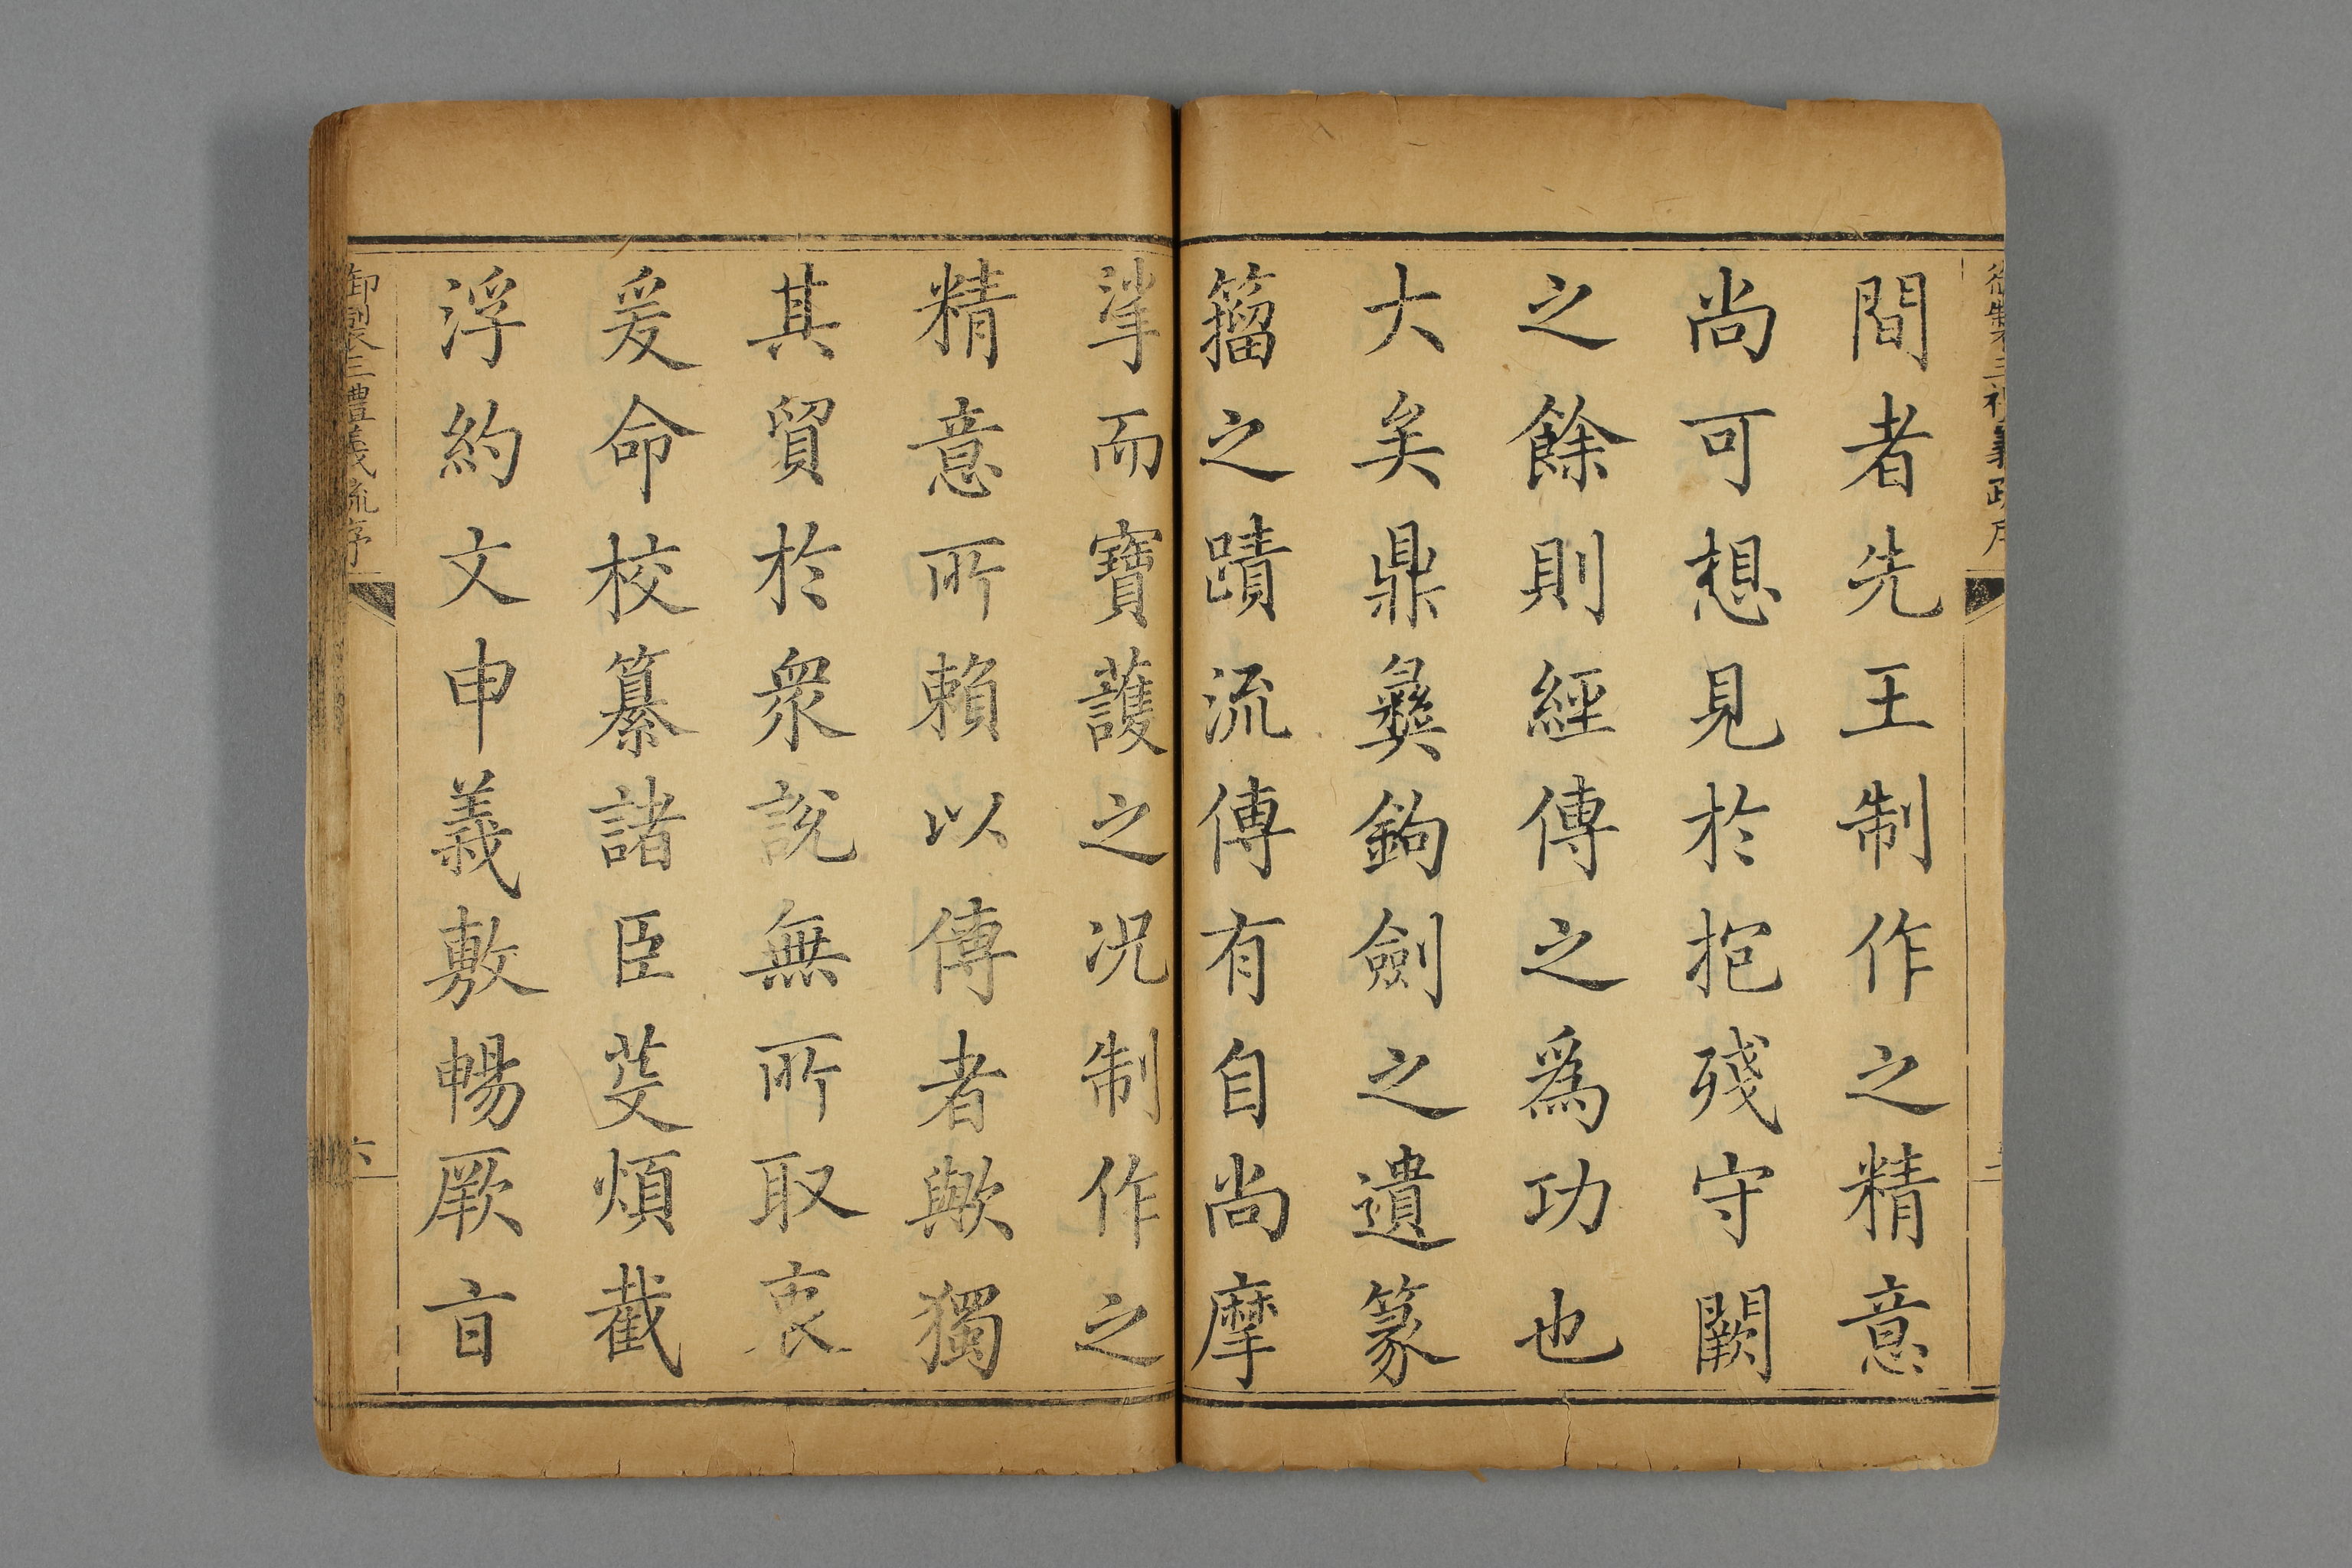 間者先王制作之精意
尚可想見於抱殘守闕
之餘則經傳之爲功也
大矣鼎彝鉤劍之遺篆
籀之蹟流傳有自尚摩
挲而寶護之况制作之
精意所賴以傳者歟獨
其貿於衆說無所取衷
爰命校纂諸臣芟煩截
浮約文申義敷暢厥㫖
御製三禮義疏序
六